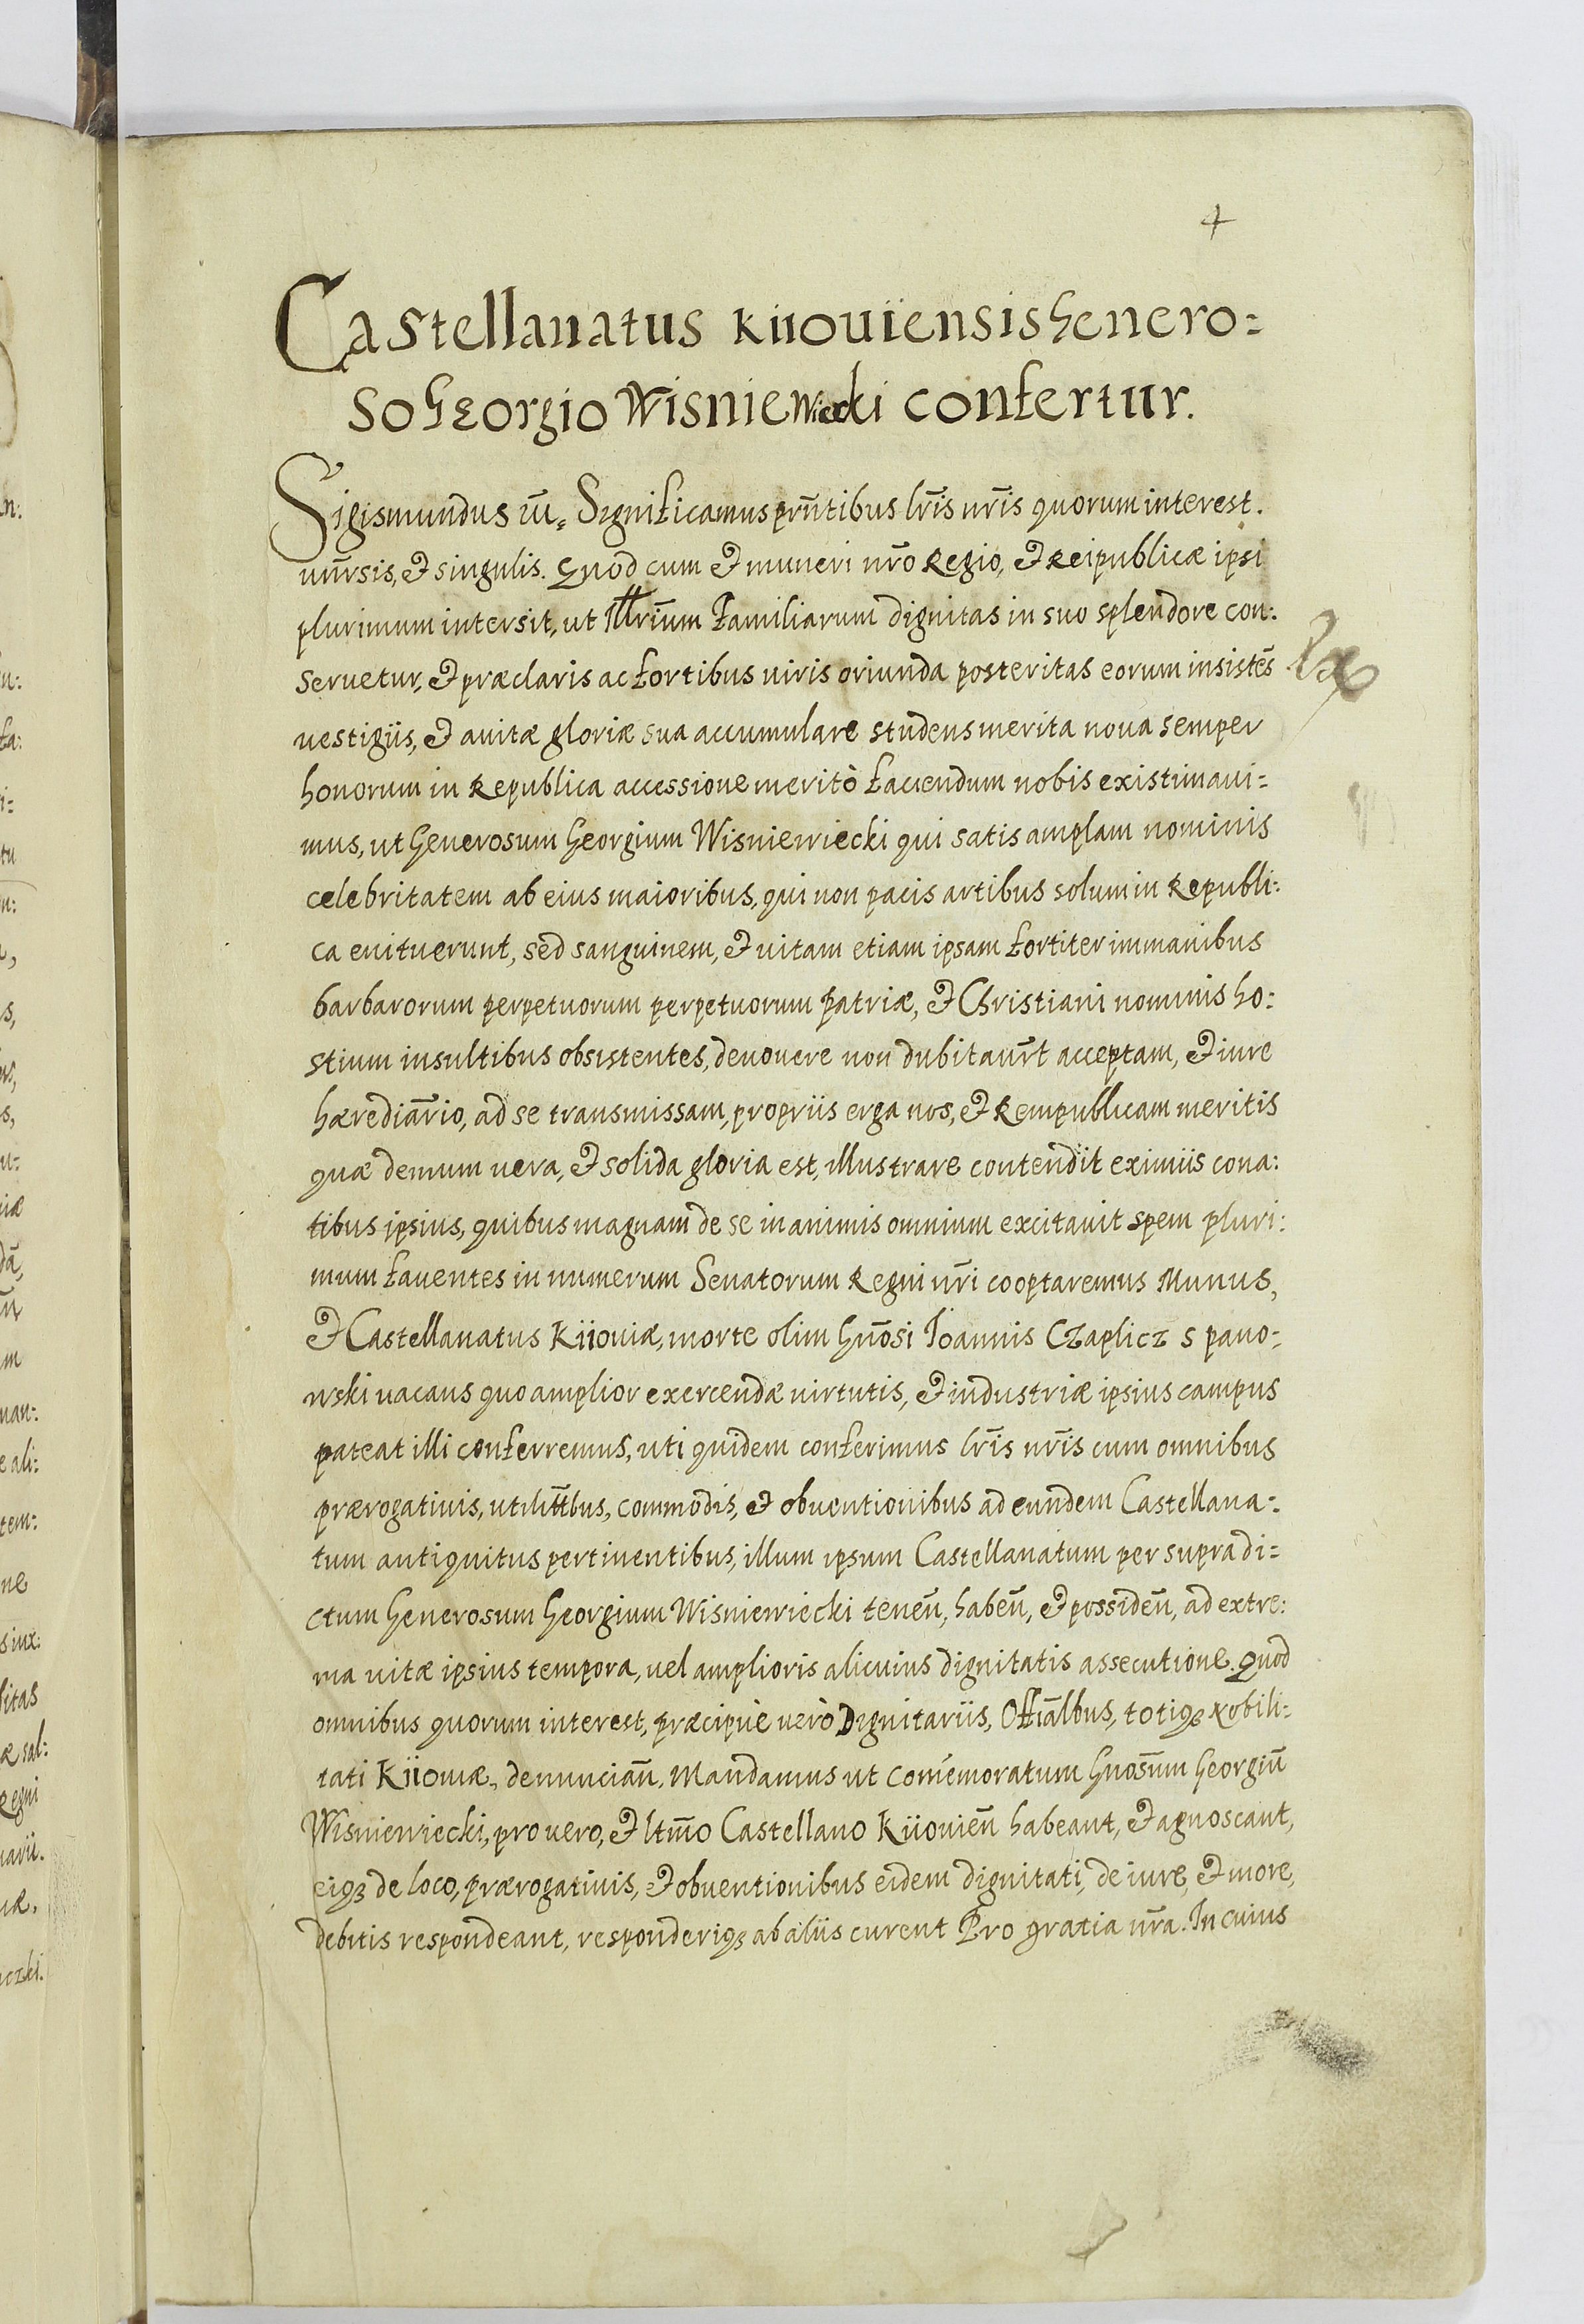 4
Castellanatus Kiiouiensis Genero=
so Georgio Wisniewiecki confertur.
Sigismundus III. Significamus prñtibus lr̃is nr̃is quorum interest.
unr̃sis, et singulis. Quod cum et muneri nr̃o Regio, et Reipublicæ ipsi
plurimum intersit, ut Illr̃ium familiarum dignitas in suo splendore con:
seruetur, et præclaris ac fortibus uiris oriunda posteritas eorum insistẽs
uestigiis, et auitæ gloriæ sua accumulare studens merita noua semper
honorum in Republica accessione meritò faciendum nobis existimaui=
mus, ut Generosum Georgium Wisniewiecki qui satis amplam nominis
celebritatem ab eius maioribus, qui non pacis artibus solum in Republi:
ca enituerunt, sed sanguinem, et uitam etiam ipsam fortiter immanibus
barbarorum perpetuorum perpetuorum patriæ, et Christiani nominis ho:
stium insultibus obsistentes, deuouere non dubitaur̃t acceptam, et iure
hærediãrio, ad se transmissam, propriis erga nos, et Rempublicam meritis
quæ demum uera, et solida gloria est, illustrare contendit eximiis cona:
tibus ipsius, quibus magnam de se in animis omnium excitauit spem pluri:
mum fauentes in numerum Senatorum Regni nr̃i cooptaremus Munus,
et Castellanatus Kiiouiæ, morte olim Gnõsi Ioannis Czaplicz Spano=
wski uacans quo amplior exercendæ uirtutis, et industriæ ipsius campus
pateat illi conferremus, uti quidem conferimus lr̃is nr̃is cum omnibus
prærogatiuis, utilitt̃bus, commodis, et obuentionibus ad eundem Castellana:
tum antiquitus pertinentibus, illum ipsum Castellanatum per supradi=
ctum Generosum Georgium Wisniewiecki teneñ, habeñ, et possideñ, ad extre:
ma uitæ ipsius tempora, uel amplioris alicuius dignitatis assecutione. Quod
omnibus quorum interest, præcipuè uerò Dignitariis, Offiãlbus, totiq3 Nobili=
tati Kiiouiæ, denunciañ. Mandamus ut com̃emoratum Gnosm̃ Georgiũ
Wisniewiecki, pro uero, et ltm̃o Castellano Kiiouieñ habeant, et agnoscant,
eiq3 de loco, prærogatiuis, et obuentionibus eidem dignitati, de iure, et more,
debitis respondeant, responderiq3 ab aliis curent Pro gratia nr̃a. In cuius